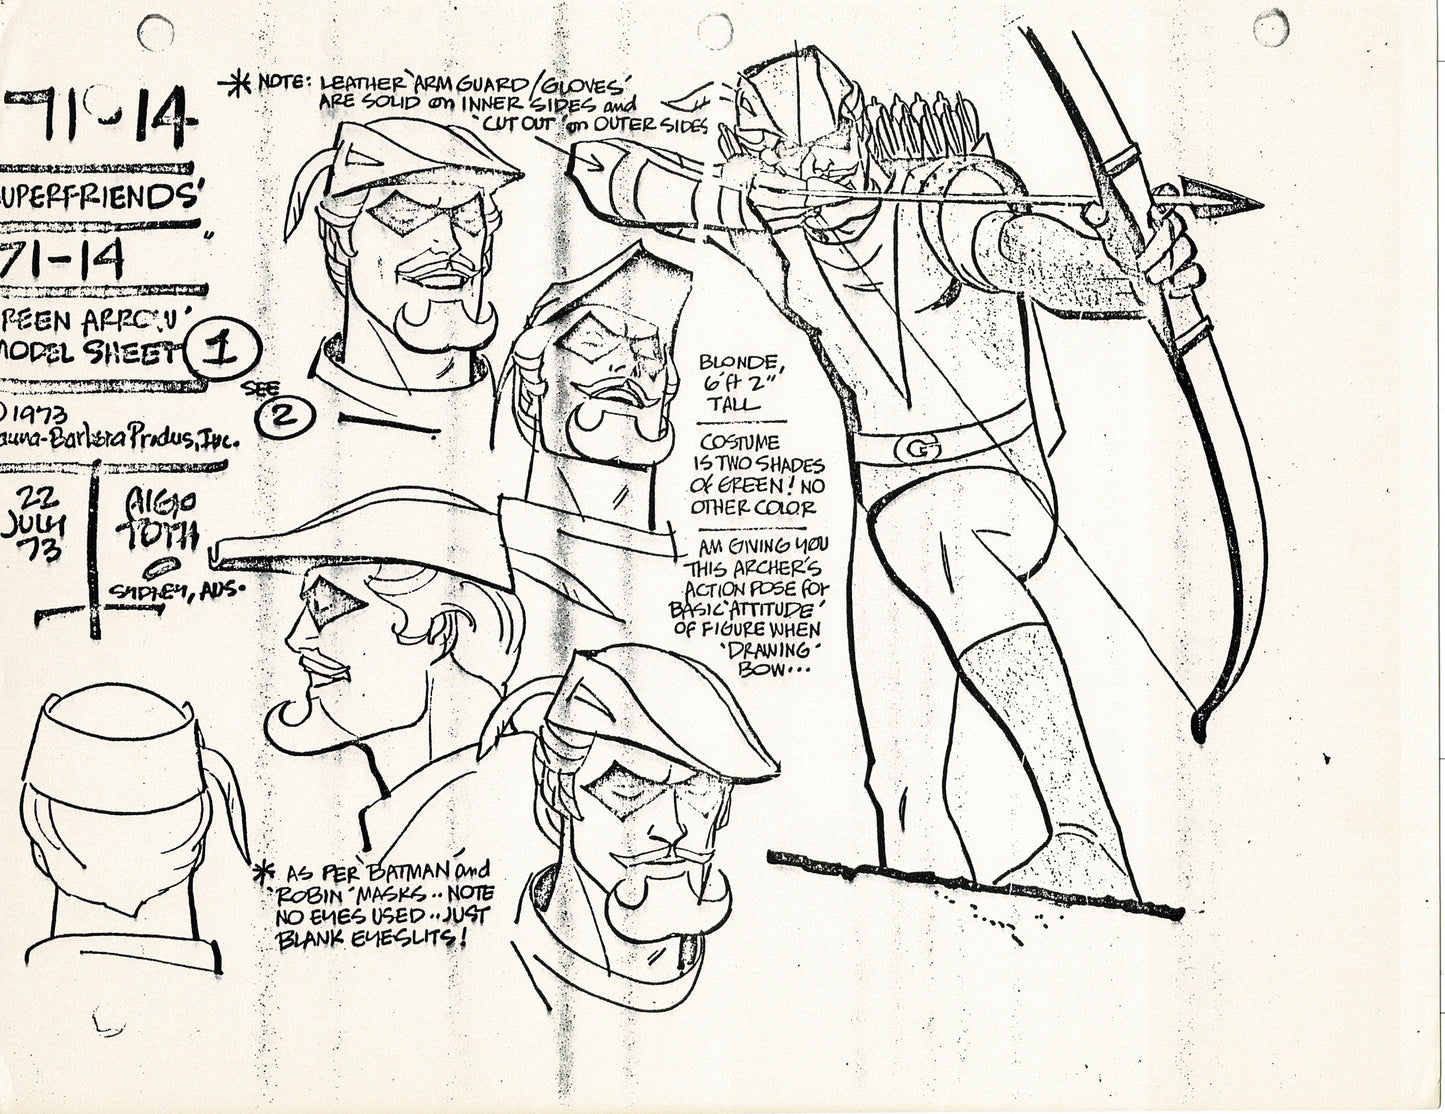 71-14
UPERFRIENDS'
71-14
REEN ARROW'
MODEL SHEET 1
SEE 2
©1973
auna-Barbera Produs, Inc.
22
JULY
73
Alejo
TOTH
SYDNEY, AUS.
* NOTE: LEATHER 'ARM GUARD/GLOVES'
ARE SOLID on INNER SIDES and
'CUT OUT' on OUTER SIDES
BLONDE,
6 ft 2"
TALL
COSTUME
IS TWO SHADES
Of GREEN! NO
OTHER COLOR
AM GIVING YOU
THIS ARCHER'S
ACTION POSE for
BASIC 'ATTITUDE'
OF FIGURE WHEN
'DRAWING'
BOW...
G
* AS PER 'BATMAN' and
'ROBIN' MASKS.. NOTE
NO EYES USED.. JUST
BLANK EYESLITS!